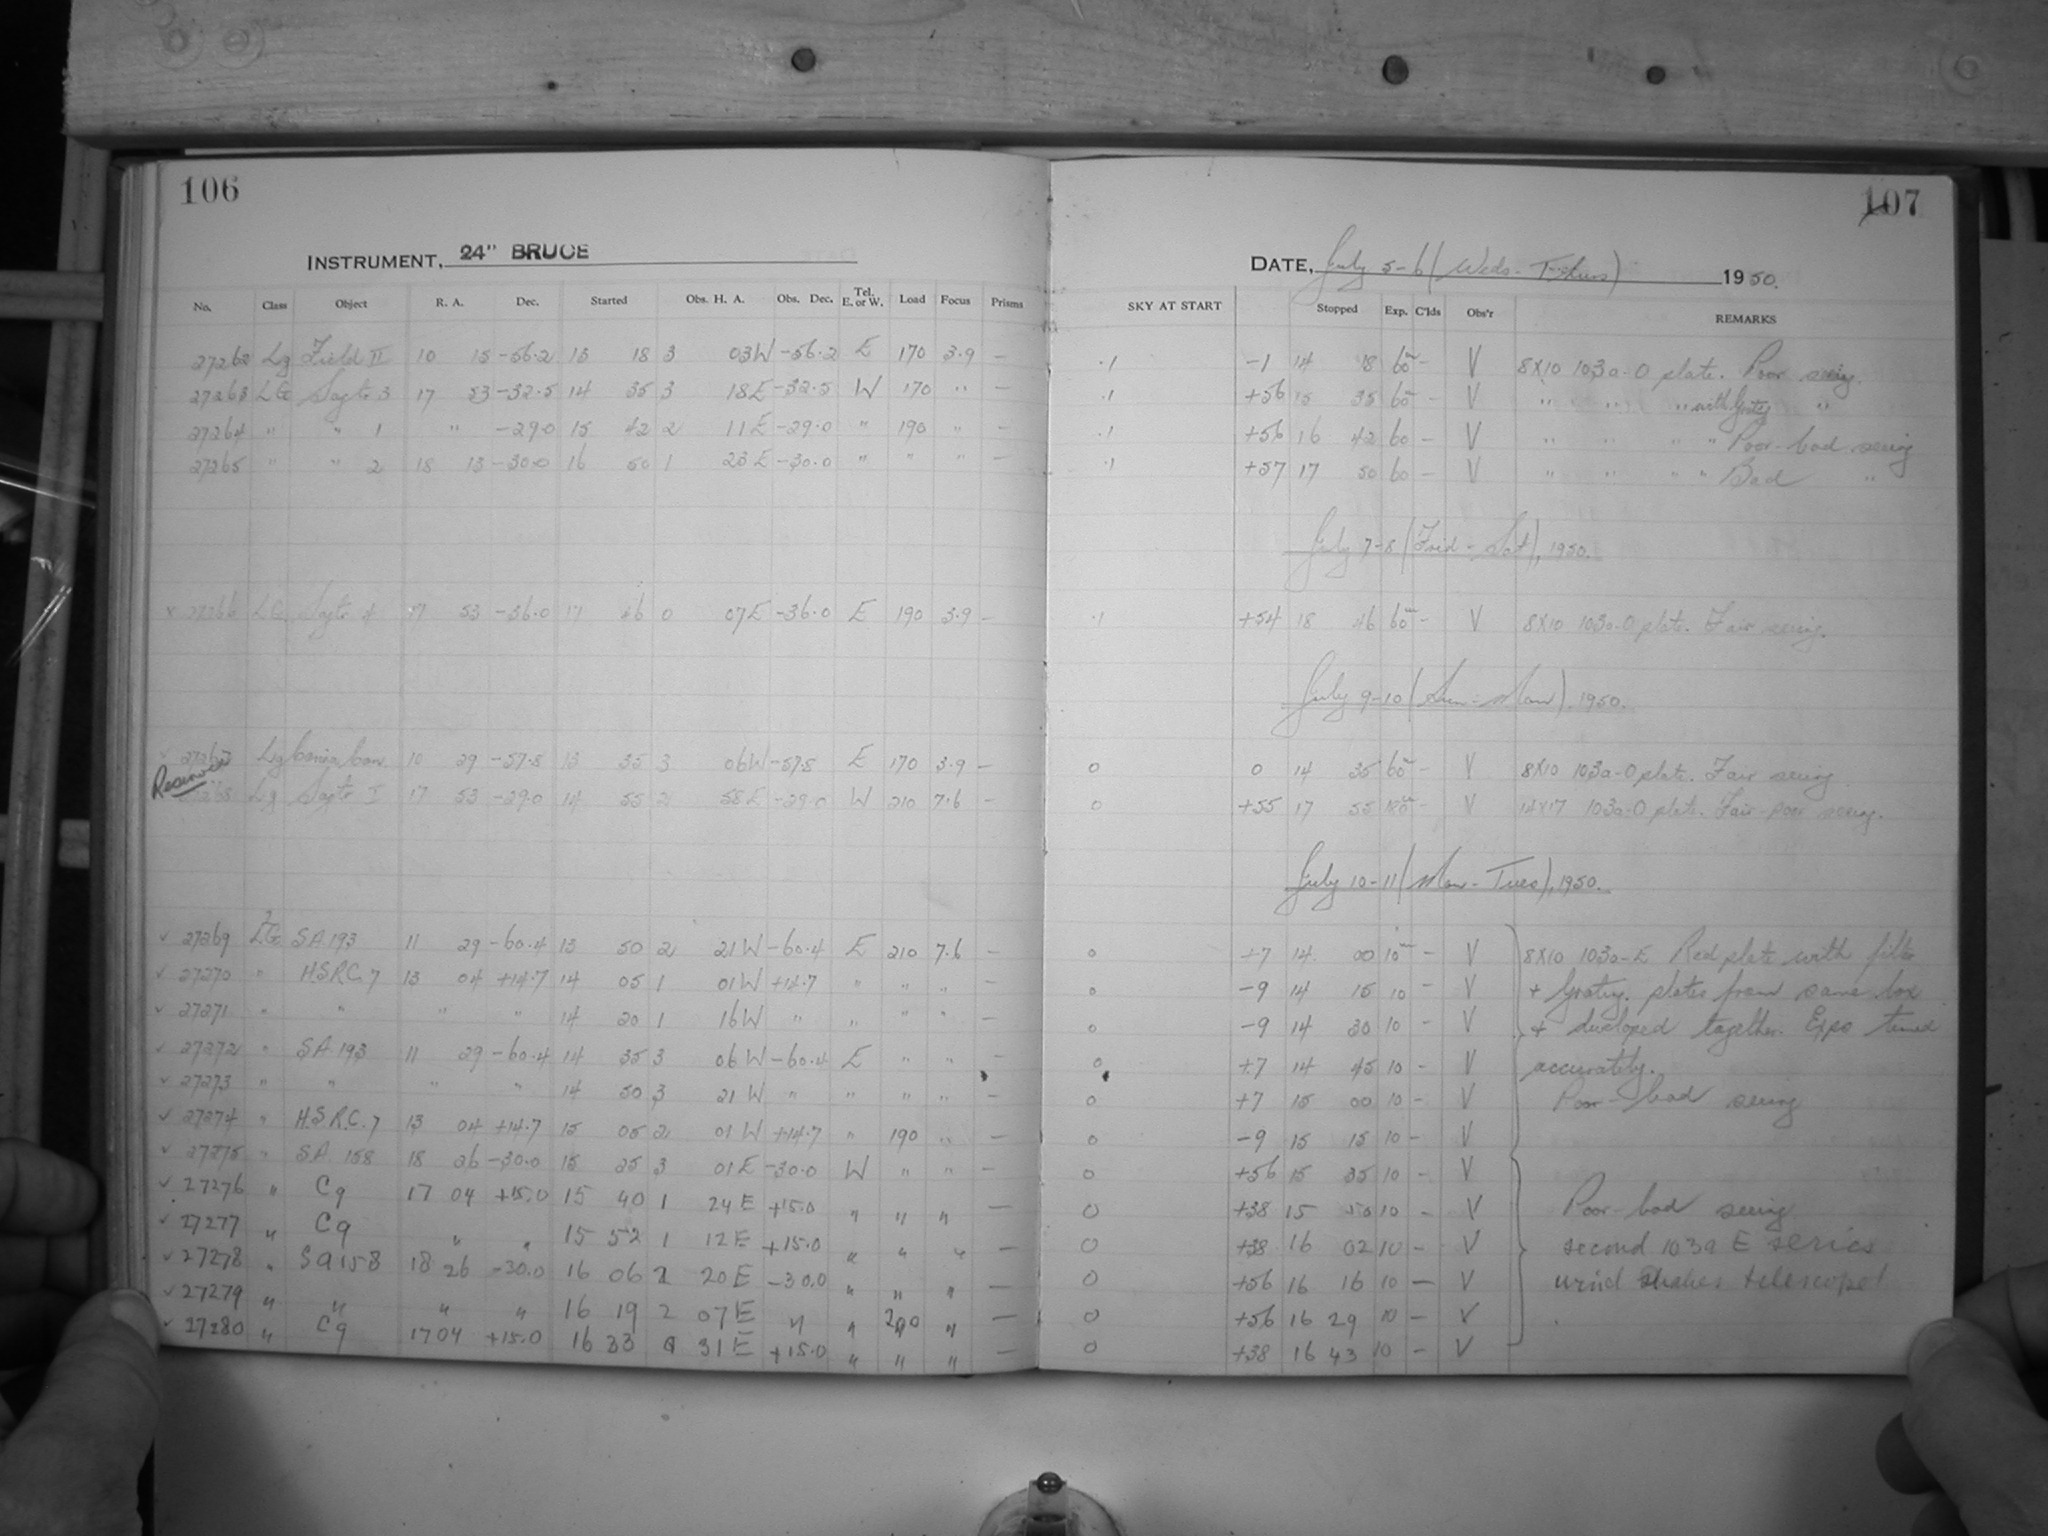 106
107
INSTRUMENT, 24" BRUCE
DATE, July 5-6 (Weds.-Thurs) 1950.
No. Class Object R. A. Dec. Started Obs. H. A. Obs. Dec. Tel. E. or W. Load Focus Prisms SKY AT START Stopped Exp. C'lds Obs'r REMARKS
27262 Lg Field II 10 15 -56.2 13 18 3 03W -56.2 E 170 3.9 — .1 -1 14 18 60m - V 8X10 103a-O plate. Poor seeing.
27263 LG Sagtr 3 17 53 -32.5 14 35 3 18E -32.5 W 170 " — .1 +56 15 35 60 - V " " " with Grating "
27264 " " 1 " -29.0 15 42 2 11E -29.0 " 190 " — .1 +56 16 42 60 - V " " " " Poor-bad seeing
27265 " " 2 18 13 -30.0 16 50 1 23E -30.0 " " " — .1 +57 17 50 60 - V " " " " Bad "
July 7-8 (Frid-Sat), 1950.
x 27266 LG Sagtr 4 17 53 -36.0 17 46 0 07E -36.0 E 190 3.9 — .1 +54 18 46 60m - V 8X10 103a-O plate. Fair seeing.
July 9-10 (Sun-Mon), 1950.
✓ 27267 Lg Carina 10 29 -57.8 13 35 3 06W -57.8 E 170 3.9 — 0 0 14 35 60m - V 8X10 103a-O plate. Fair seeing
27268 Lg Sagtr I 17 53 -29.0 14 55 2 58E -29.0 W 210 7.6 — 0 +55 17 55 180m - V 14X17 103a-O plate. Fair-poor seeing.
July 10-11 (Mon-Tues), 1950.
✓ 27269 LG SA 193 11 29 -60.4 13 50 2 21W -60.4 E 210 7.6 — 0 +7 14 00 10m - V 8X10 103a-E Red plate with filter
✓ 27270 " HSRC 7 13 04 +14.7 14 05 1 01W +14.7 " " " — 0 -9 14 15 10 - V + Grating. plates from same box
✓ 27271 " " " " 14 20 1 16W " " " " — 0 -9 14 30 10 - V + developed together. Expo timed
✓ 27272 " SA 193 11 29 -60.4 14 35 3 06W -60.4 E " " — 0 +7 14 45 10 - V accurately.
✓ 27273 " " " " 14 50 3 21W " " " " — 0 +7 15 00 10 - V Poor-bad seeing
✓ 27274 " HSRC 7 13 04 +14.7 15 05 2 01W +14.7 " 190 " — 0 -9 15 15 10 - V
✓ 27275 " SA 158 18 26 -30.0 15 25 3 01E -30.0 W " " — 0 +56 15 35 10 - V
✓ 27276 " C9 17 04 +15.0 15 40 1 24E +15.0 " " " — 0 +38 15 50 10 - V Poor-bad seeing
✓ 27277 " C9 " " 15 52 1 12E +15.0 " " " — 0 +38 16 02 10 - V second 103a E series
✓ 27278 " SA 158 18 26 -30.0 16 06 2 20E -30.0 " " " — 0 +56 16 16 10 - V wind shakes telescope!
✓ 27279 " " " " 16 19 2 07E " " 200 " — 0 +56 16 29 10 - V
✓ 27280 " C9 17 04 +15.0 16 33 31E +15.0 " " " — 0 +38 16 43 10 - V